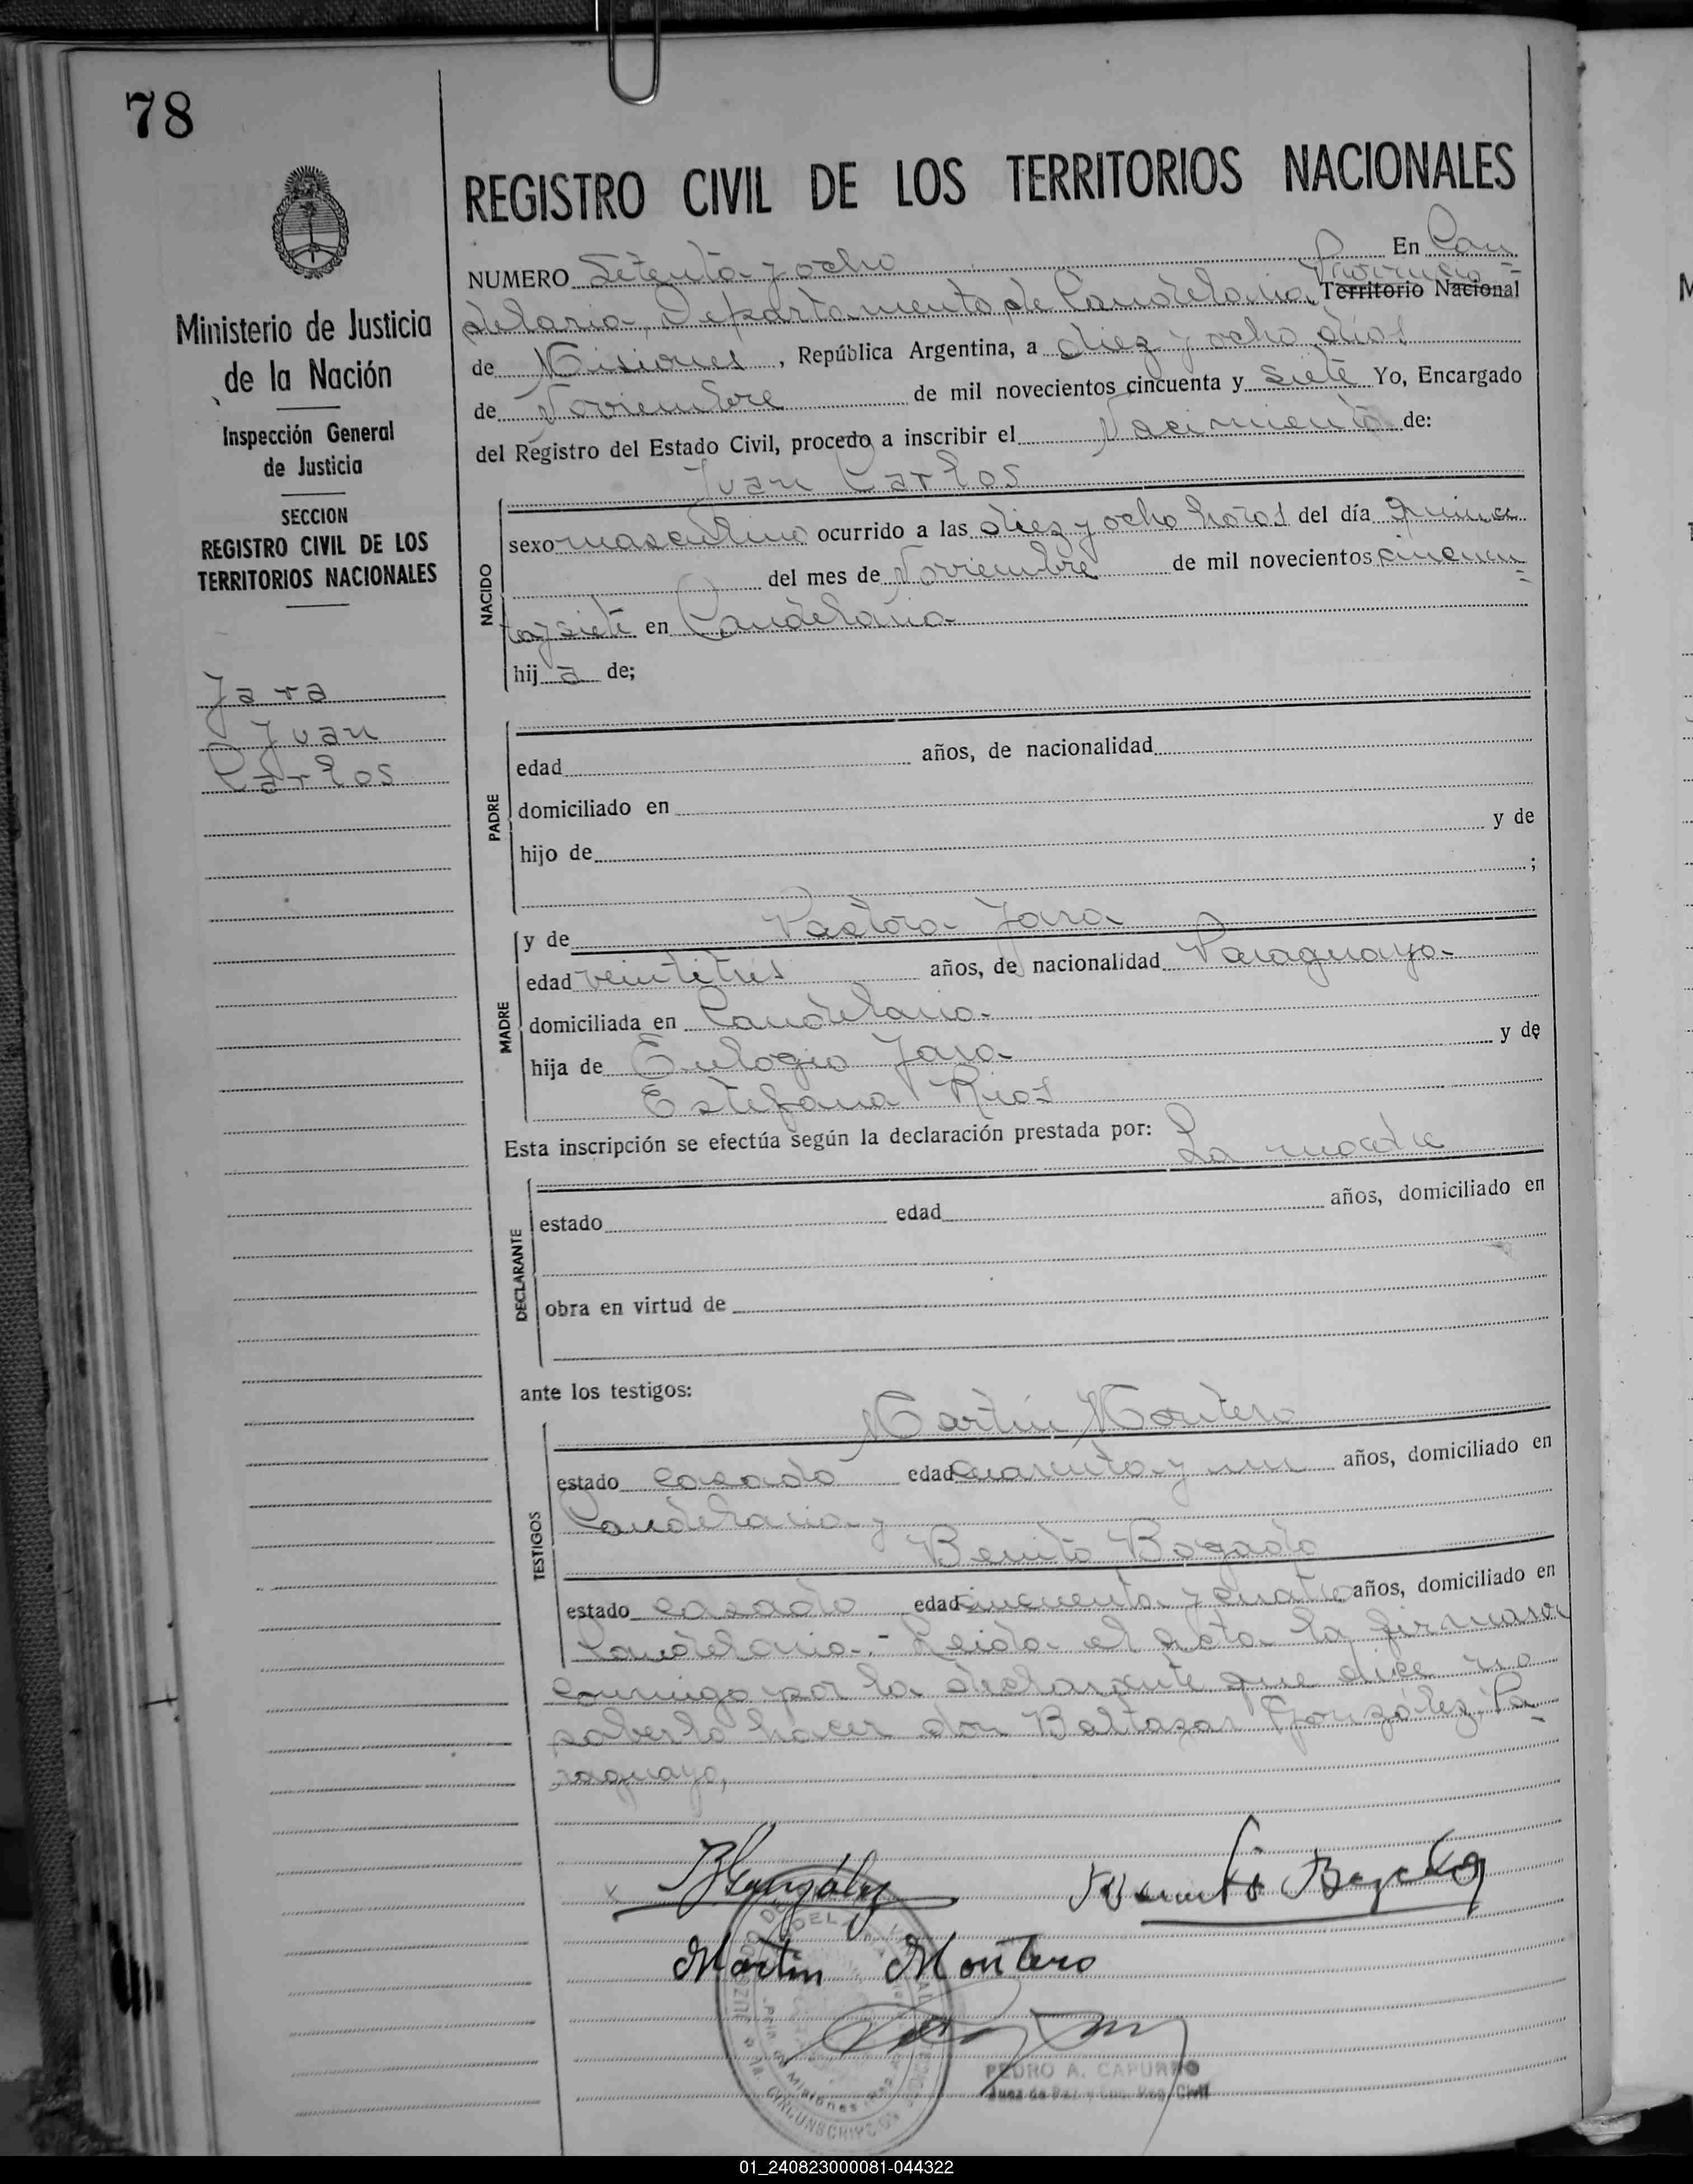 78
REGISTRO CIVIL DE LOS TERRITORIOS NACIONALES
Ministerio de Justicia
de la Nación
Inspección General
de Justicia
SECCION
REGISTRO CIVIL DE LOS
TERRITORIOS NACIONALES
Jara
Juan
Carlos
NUMERO Setenta y ocho En Can
Provincia
delaria, Departamento de Candelaria, Territorio Nacional
de Misiones, República Argentina, a diez y ocho días
de Noviembre de mil novecientos cincuenta y siete Yo, Encargado
del Registro del Estado Civil, procedo a inscribir el Nacimiento de:
Juan Carlos
NACIDO
sexo masculino ocurrido a las diez y ocho horas del día quince
del mes de Noviembre de mil novecientos cincuen
ta y siete en Candelaria
hij a de;
PADRE
edad años, de nacionalidad
domiciliado en
hijo de y de
;
MADRE
y de Pastora Jara
edad veintitres años, de nacionalidad Paraguaya
domiciliada en Candelaria
hija de Eulogio Jara y de
Estefana Rios
Esta inscripción se efectúa según la declaración prestada por: La madre
DECLARANTE
estado edad años, domiciliado en
obra en virtud de
ante los testigos:
TESTIGOS
Martín Montero
estado casado edad cuarenta y un años, domiciliado en
Candelaria y
Benito Bogado
estado casado edad cincuenta y cuatro años, domiciliado en
Candelaria.- Leida el acta la firmaron
conmigo por la declarante que dice no
saberlo hacer don Baltazar González, Pa
raguayo,
BGonzález Benito Bogado
Martin Montero
PEDRO A. CAPURRO
Juez de Paz y Enc. Reg. Civil
01_240823000081-044322